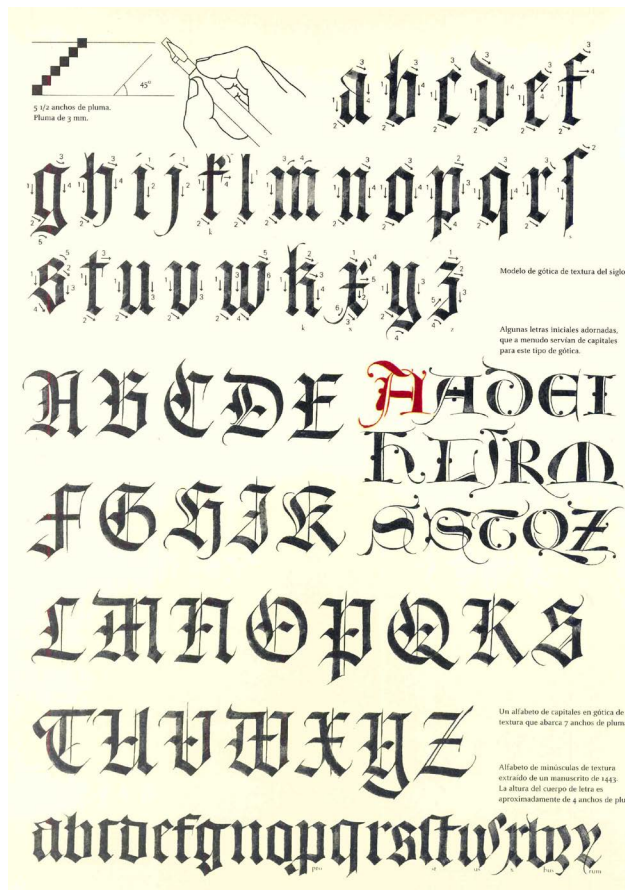 45°
5 1/2 anchos de pluma.
Pluma de 3 mm.
a b c d e f
g h i j k l m n o p q r ſ
s t u v w k x y z
Modelo de gótica de textura del siglo
Algunas letras iniciales adornadas,
que a menudo servían de capitales
para este tipo de gótica.
A B C D E
A A D E I
H L J R M
F G H I K
S S T O Z
L M N O P Q R S
T U V W X Y Z
Un alfabeto de capitales en gótica de
textura que abarca 7 anchos de pluma
Alfabeto de minúsculas de textura
extraído de un manuscrito de 1443.
La altura del cuerpo de letra es
aproximadamente de 4 anchos de plu